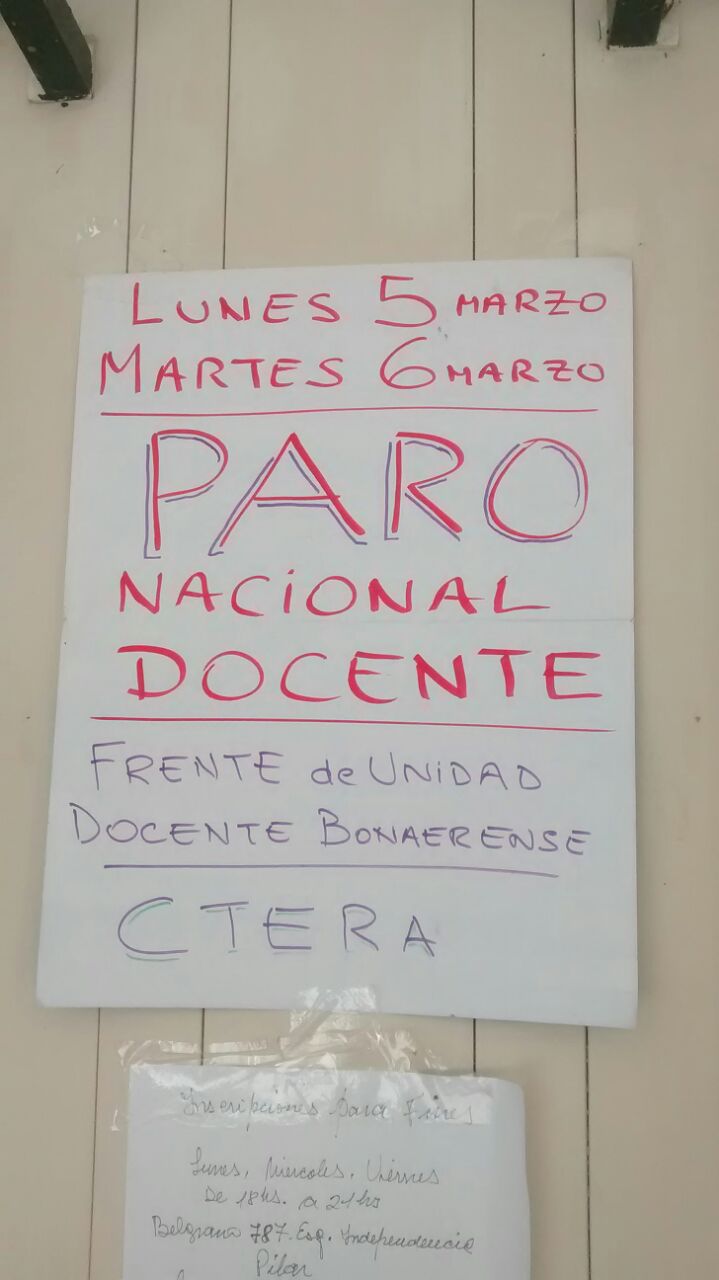 LUNES 5 MARZO
MARTES 6 MARZO
PARO
NACIONAL
DOCENTE
FRENTE de UNIDAD
DOCENTE BONAERENSE
CTERA
Inscripciones para Fines
Lunes, Miercoles, Viernes
De 18hs. a 21hs
Belgrano 787. Esq. Independencia
Pilar